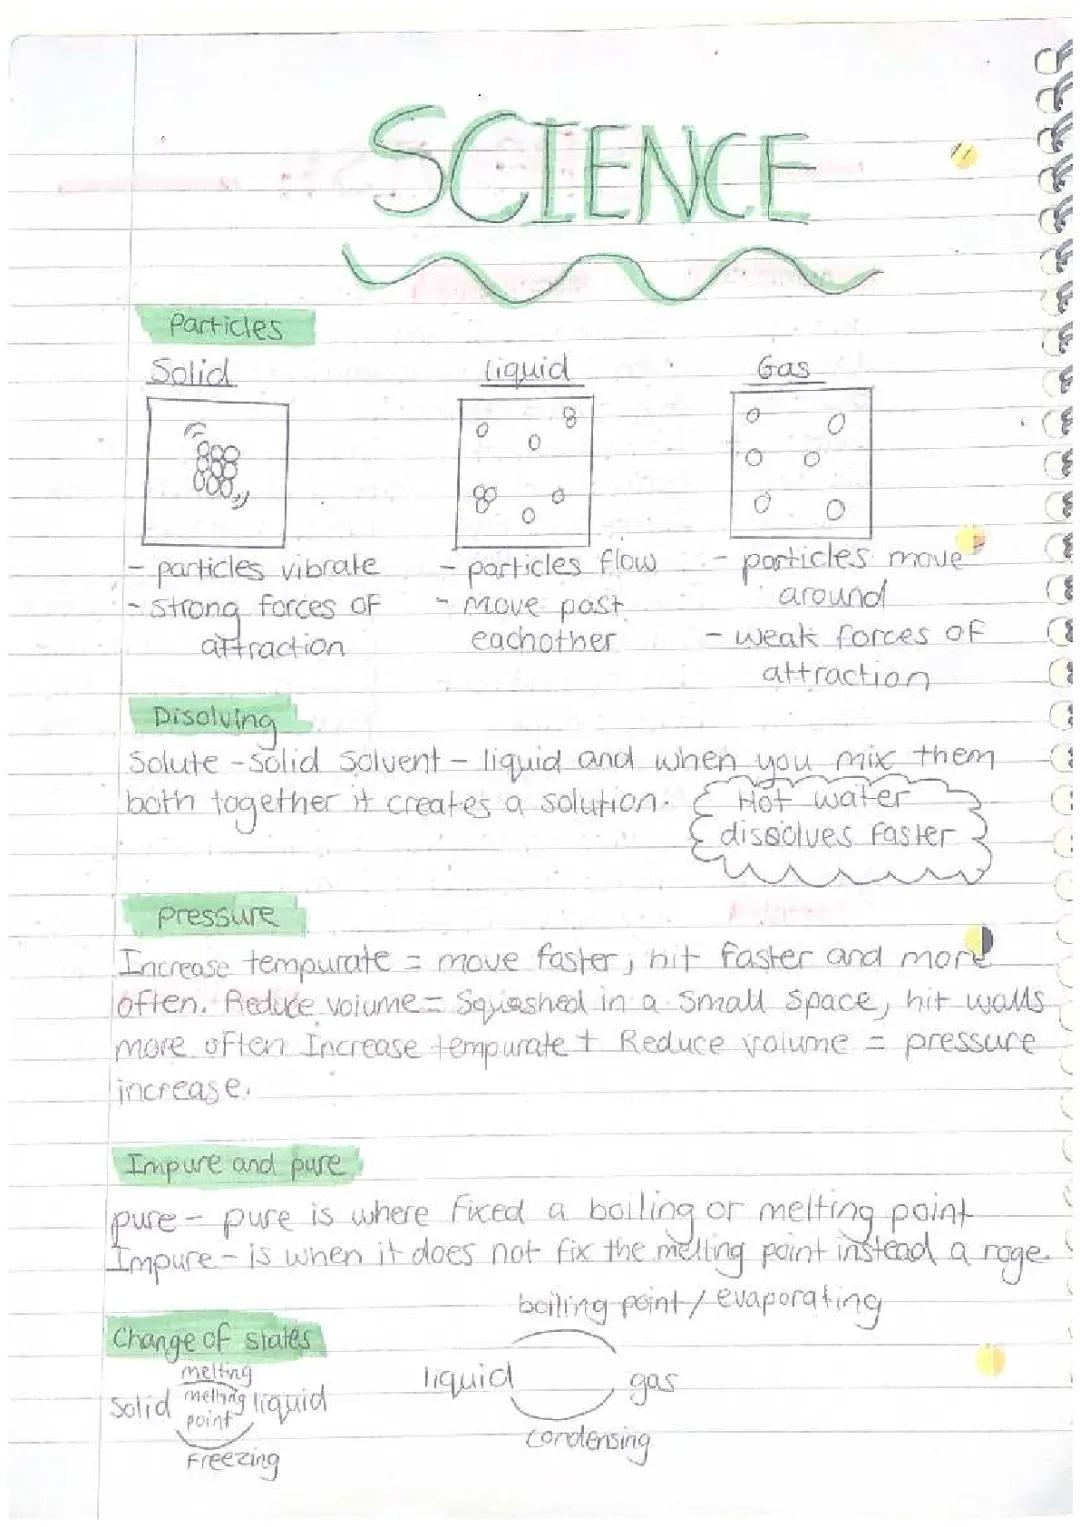 SCIENCE
Particles
Solid
liquid
Gas
- particles vibrate
- strong forces of
attraction
- particles flow
- Move past
eachother
- particles move
around
- weak forces of
attraction
Disolving
Solute - Solid Solvent - liquid and when you mix them
both together it creates a solution.
Hot water
dissolves faster
pressure
Increase tempurate = move faster, hit faster and more
often. Reduce volume = Squashed in a small space, hit walls
more often Increase tempurate + Reduce volume = pressure
increase.
Impure and pure
pure - pure is where fixed a boiling or melting point
Impure - is when it does not fix the melting point instead a rage.
boiling point / evaporating
Change of states
melting
Solid melting liquid
point
Freezing
liquid
gas
condensing